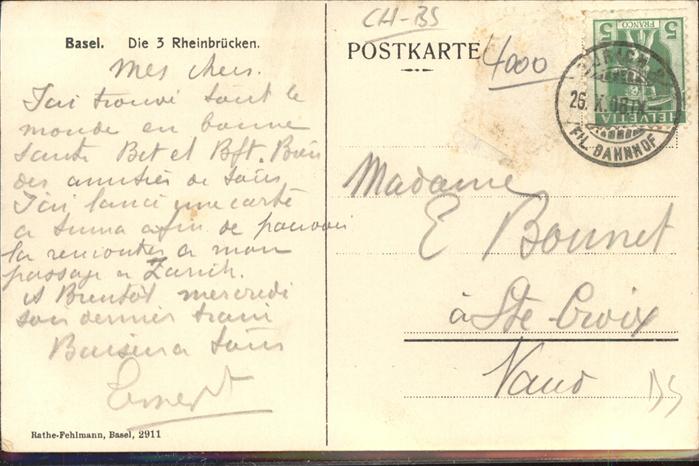 CH-BS
Basel. Die 3 Rheinbrücken.
Mes chers.
J'ai trouvé tout le
monde en bonne
santé Bet et Bft. Bien
des amitiés de tous
J'ai lancé une carte
a afin de pouvoir
la rencontrer a mon
passage a Zurich.
A Bientôt mercredi
soir dernier train
Baisers a tous
Ernest
Rathe-Fehlmann, Basel, 2911
POSTKARTE
4000
FRANCO
5 5
HELVETIA
ZÜRICH
26. X. 08 IX
FIL. BAHNHOF
Madame
E Bonnet
à Ste Croix
Vaud
DS